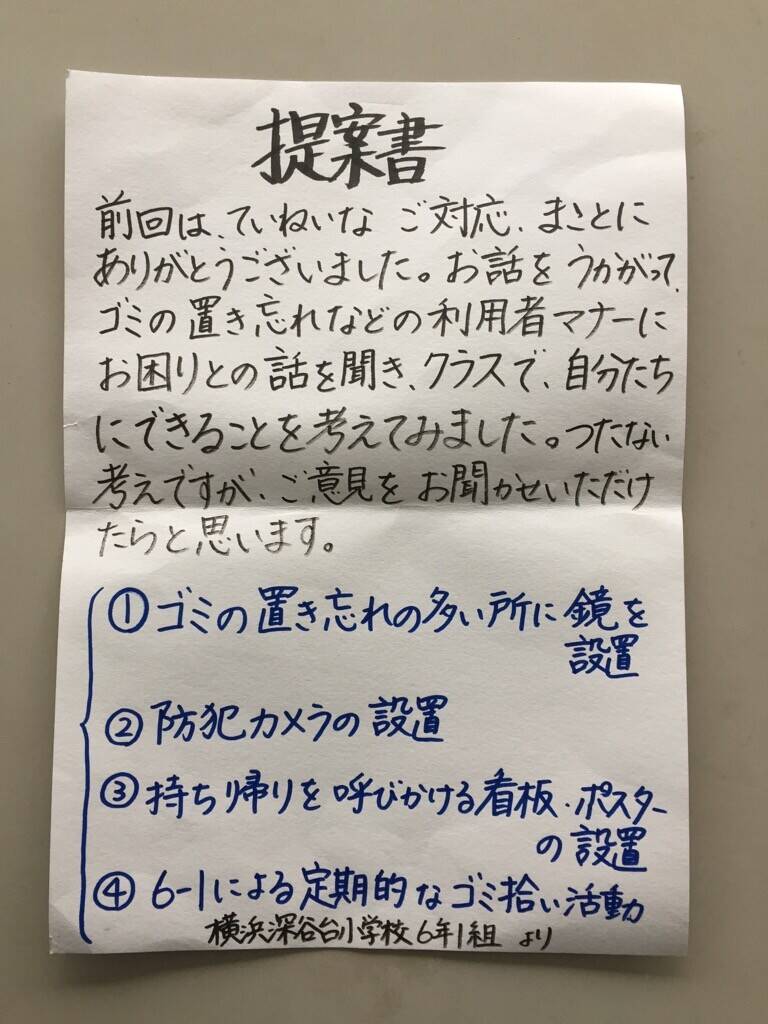 提案書
前回は、ていねいな ご対応、まことに
ありがとうございました。お話を うかがって、
ゴミの置き忘れなどの利用者マナーに
お困りとの話を聞き、クラスで、自分たち
にできることを考えてみました。つたない
考えですが、ご意見を お聞かせいただけ
たらと思います。
①ゴミの置き忘れの多い所に鏡を
設置
②防犯カメラの設置
③持ち帰りを呼びかける看板・ポスター
の設置
④6-1による定期的なゴミ拾い活動
横浜深谷台小学校6年1組 より